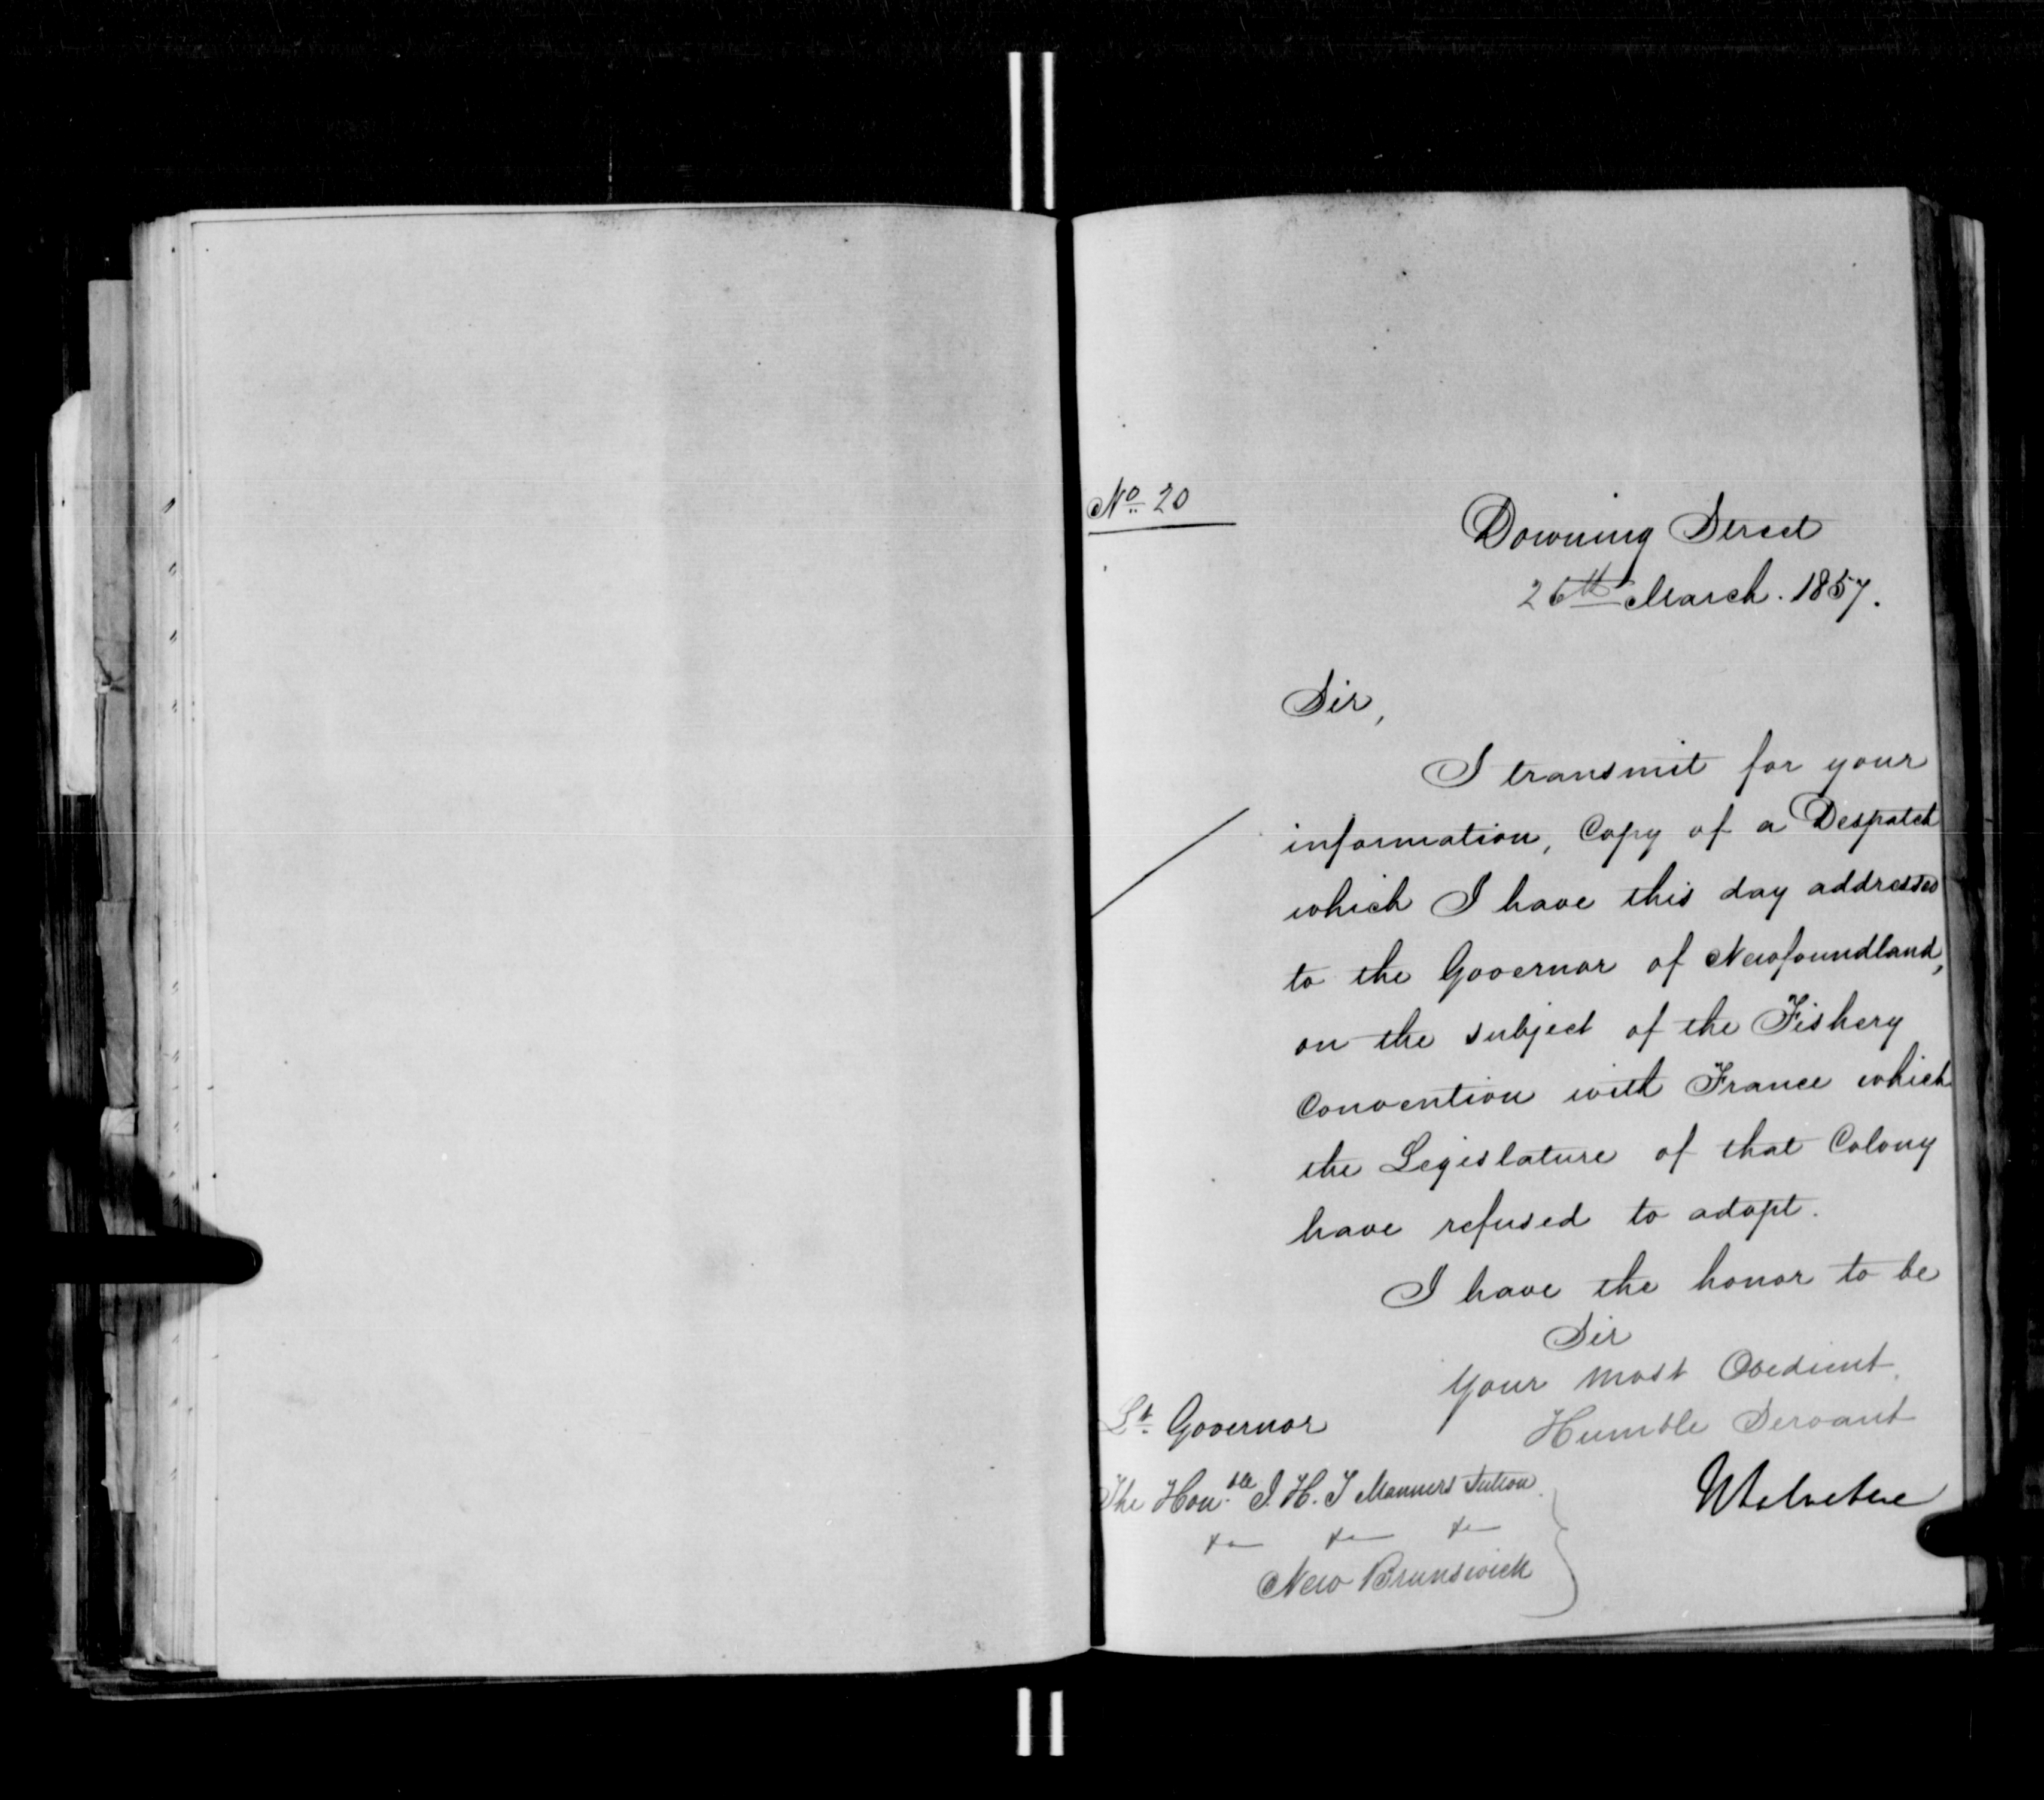 No. 20
Downing Street
26th March. 1857.
Sir,
I transmit for your
information, Copy of a Despatch
which I have this day addressed
to the Governor of Newfoundland,
on the subject of the Fishery
Convention with France which
the Legislature of that Colony
have refused to adopt.
I have the honor to be
Sir
Your most Obedient
Humble Servant
Lt. Governor
The Honble. J. H. T Manners Sutton
&c &c &c
New Brunswick